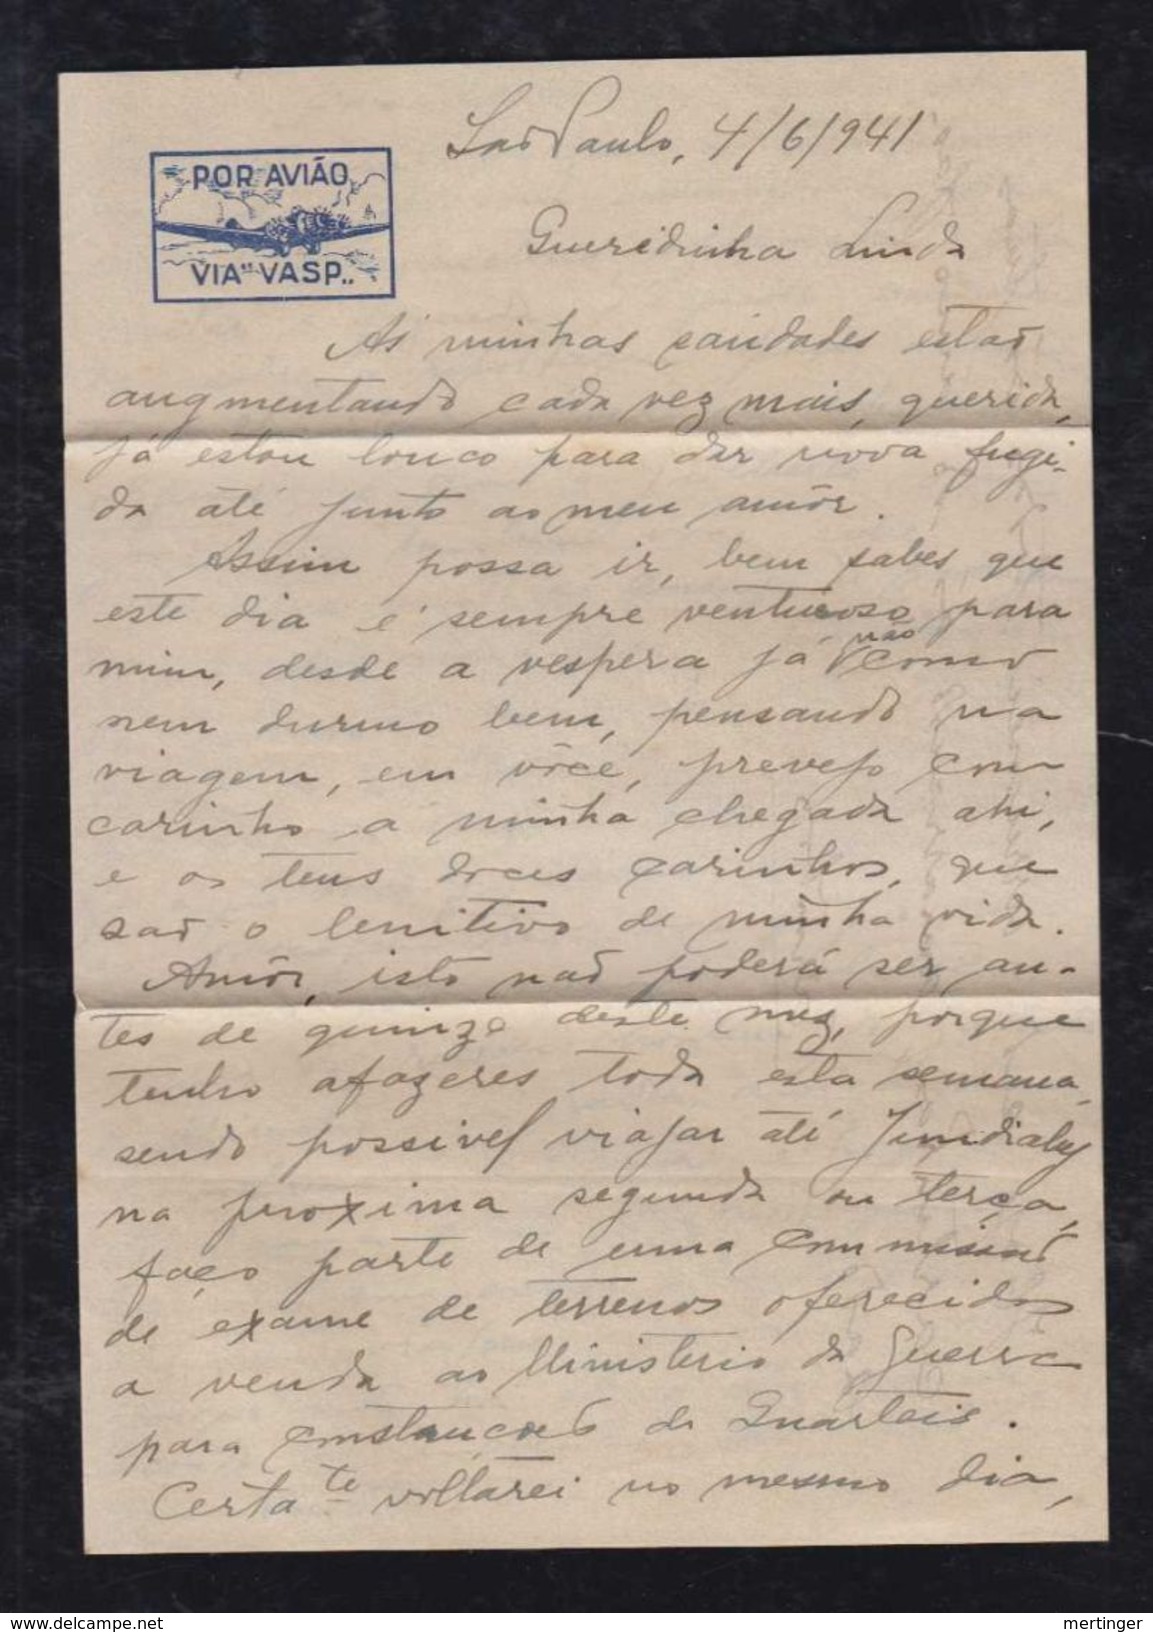 São Paulo, 4/6/941
POR AVIÃO
VIA "VASP"
Queridinha Linda
As minhas saudades estão
augmentando cada vez mais, querida,
já estou louco para dar nova fugi-
da até junto ao meu amôr.
Assim possa ir, bem sabes que
este dia é sempre venturoso para
mim, desde a vespera já não como
nem durmo bem, pensando na
viagem, em vôce, prevejo com
carinho a minha chegada ahi,
e os teus doces carinhos, que
são o lenitivo de minha vida.
Amôr, isto não poderá ser an-
tes de quinze deste mez, porque
tenho afazeres toda esta semana,
sendo possivel viajar até Jundiahy
na proxima segunda ou terça,
faço parte de uma commissão
de exame de terrenos oferecidos
a venda ao Ministerio da Guerra
para construcções de Quarteis.
Certa te voltarei no mesmo dia,
www.delcampe.net
mertinger